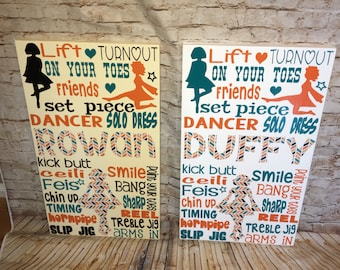 Lift TURNOUT
ON YOUR TOES
friends
set piece
DANCER SOLO DRESS
Rowan
kick butt
ceili Smile
Feis BANG
chin up Point your toes
TIMING SHARP
hornpipe REEL
SLIP JIG TREBLE JIG
ARMS IN
Lift TURNOUT
ON YOUR TOES
friends
set piece
DANCER SOLO DRESS
DUFFY
kick butt
ceili Smile
Feis BANG
chin up Point your toes
TIMING SHARP
hornpipe REEL
SLIP JIG TREBLE JIG
ARMS IN